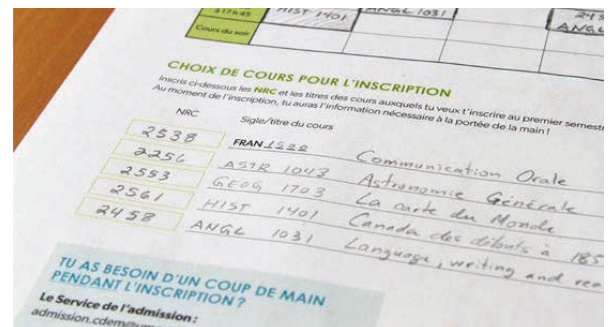 à 17 h 45
HIST 1401
ANGL 1031
Cours du soir
ANGL
CHOIX DE COURS POUR L'INSCRIPTION
Inscris ci-dessous les NRC et les titres des cours auxquels tu veux t'inscrire au premier semestr
Au moment de l'inscription, tu auras l'information nécessaire à la portée de la main !
NRC Sigle/titre du cours
2538 FRAN 1500 Communication Orale
2256 ASTR 1043 Astronomie Générale
2553 GEOG 1703 La carte du Monde
2561 HIST 1401 Canada des débuts à 185
2458 ANGL 1031 Language, writing and rea
TU AS BESOIN D'UN COUP DE MAIN
PENDANT L'INSCRIPTION ?
Le Service de l'admission :